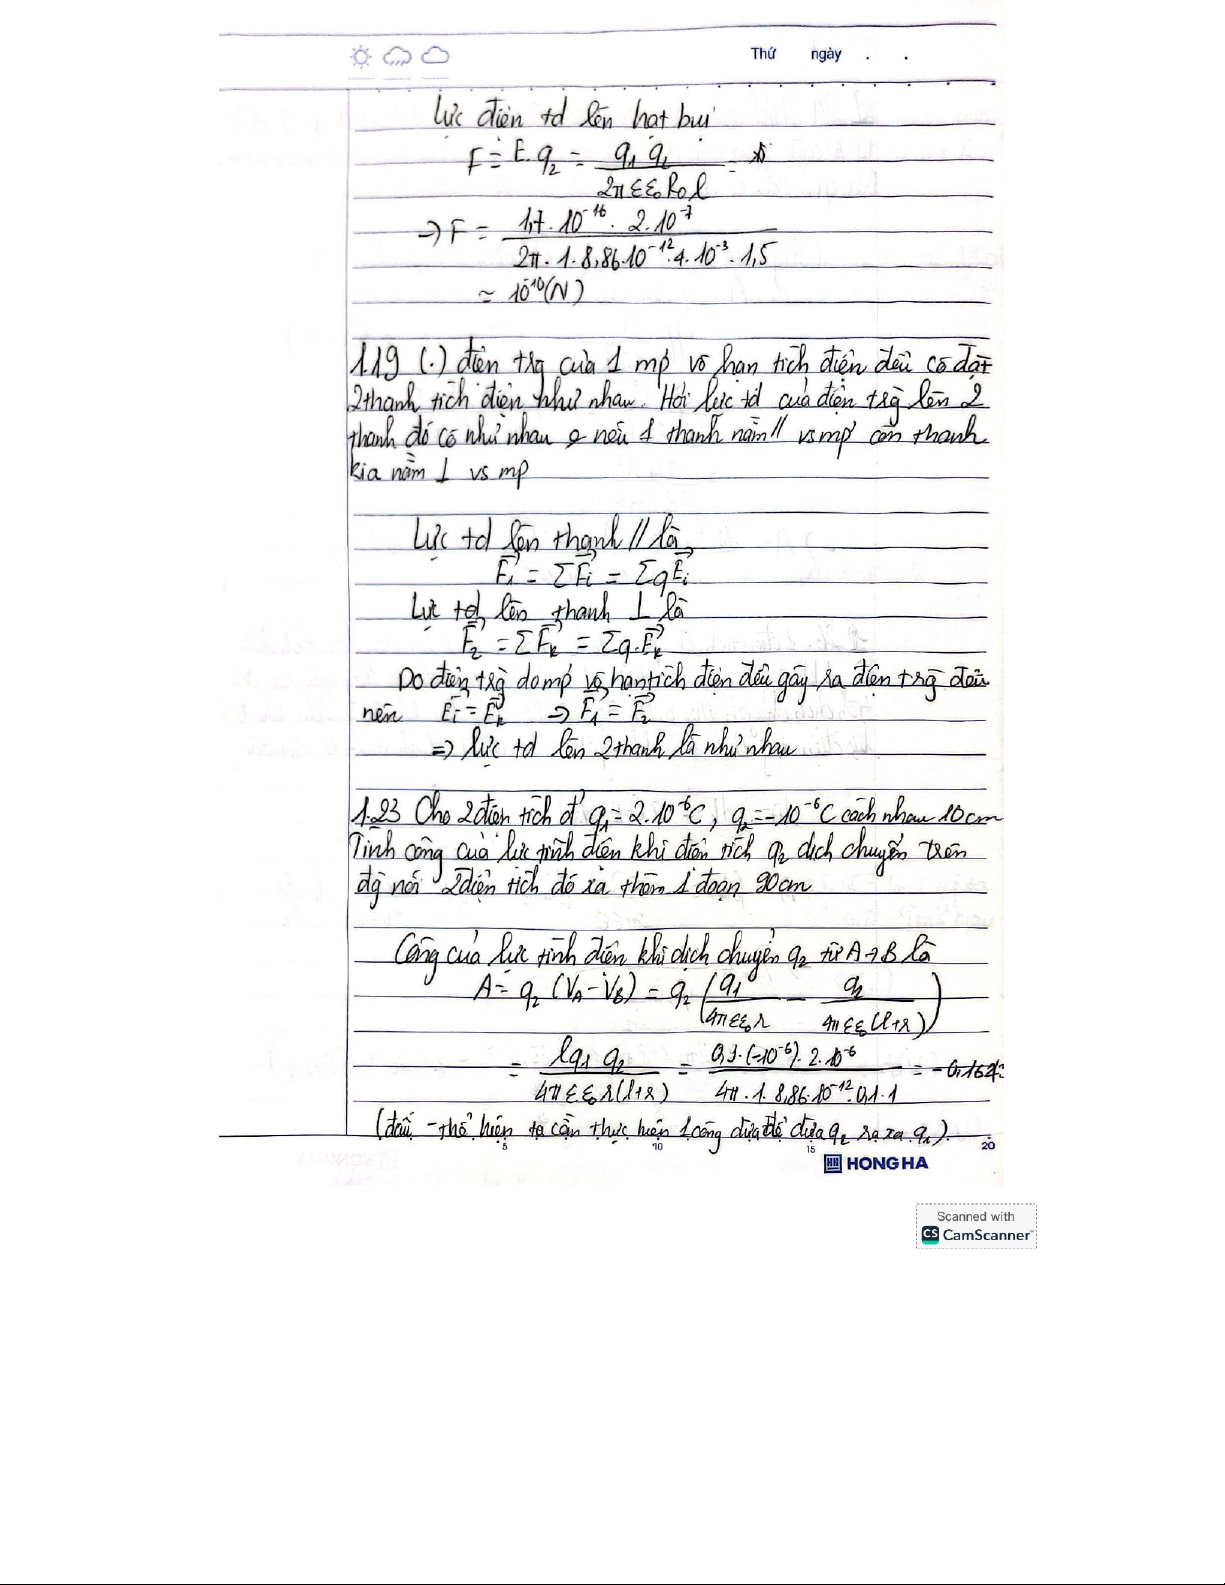 Thứ ngày . .
Lực điện td lên hạt bụi
F = E.q₂ = q₁ q₂ / 2πεε₀R₀l =
⇒ F = 1,7.10⁻¹⁶. 2.10⁻⁷ / 2π.1.8,86.10⁻¹².4.10⁻³.1,5
≈ 10⁻¹⁰(N)
1.19 (.) điện trg của 1 mp vô hạn tích điện đều có đặt
2 thanh tích điện như nhau. Hỏi lực td của điện trg lên 2
thanh đó có như nhau o nếu 1 thanh nằm // vs mp còn thanh
kia nằm ⊥ vs mp
Lực td lên thanh // là
F⃗₁ = ΣF⃗ᵢ = ΣqE⃗ᵢ
Lực td lên thanh ⊥ là
F⃗₂ = ΣF⃗ₖ = Σq.E⃗ₖ
Do điện trg do mp vô hạn tích điện đều gây ra điện trg đều
nên E⃗ᵢ = E⃗ₖ ⇒ F⃗₁ = F⃗₂
⇒ lực td lên 2 thanh là như nhau
1.23 Cho 2 điện tích đ' q₁ = 2.10⁻⁶C, q₂ = -10⁻⁶C cách nhau 10cm
Tính công của lực tĩnh điện khi điện tích q₂ dịch chuyển trên
đg nối 2 điện tích đó xa thêm 1 đoạn 90cm
Công của lực tĩnh điện khi dịch chuyển q₂ từ A→B là
A = q₂ (V_A - V_B) = q₂ (q₁ / 4πεε₀r - q₂ / 4πεε₀(l+r))
= lq₁ q₂ / 4πεε₀r(l+r) = 0,9.(-10⁻⁶).2.10⁻⁶ / 4π.1.8,86.10⁻¹².0,1.1 = -0,162
(dấu - thể hiện ta cần thực hiện 1 công để đưa q₂ ra xa q₁).
5 10 15 20
HONG HA
Scanned with
CS CamScanner